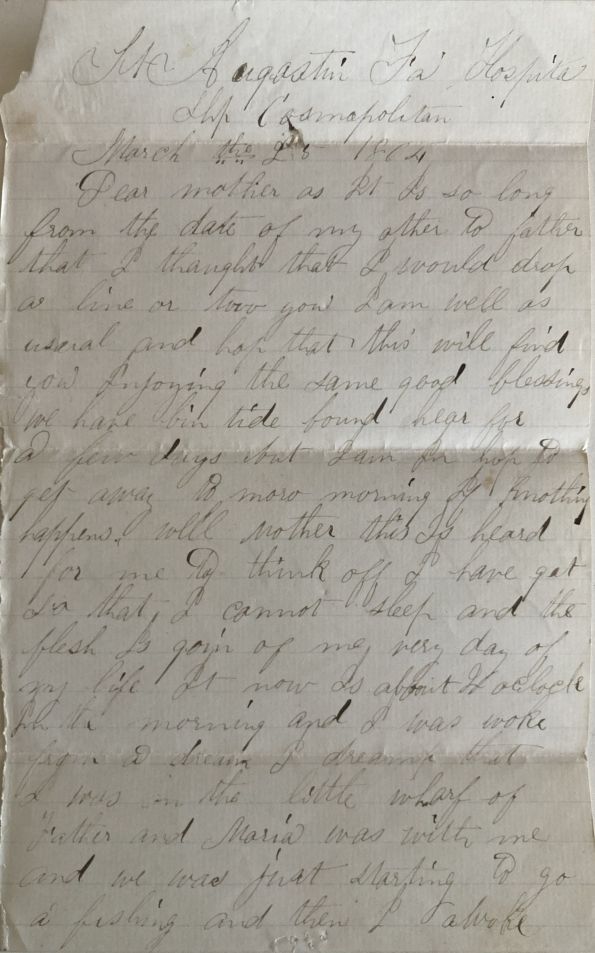 St Augustin Fa Hospital
Ship Cosmopolitan
March the 25 1864
Dear mother as It Is so long
from the date of my other to father
that I thought that I would drop
a line or two you I am well as
useral and hop that this will find
you Injoying the same good blessings
we have bin tide bound hear for
a few days but I am In hop to
get away to moro morning If nothing
happens. well Mother this Is heard
for me to think off I have got
so that I cannot sleep and the
flesh Is goin of me very day of
my life It now Is about 2 oclock
In the morning and I was woke
from a dream I dreamp that
I was in the little wharf of
Father and Maria was with me
and we was just starting to go
a fishing and then I awoke